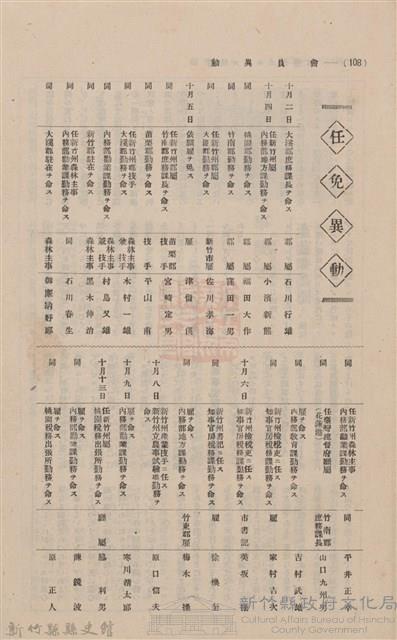 (108)——會員異動
任免異動
十月二日 大溪郡庶務課長ヲ命ス 郡屬 石川行雄
十月四日 任新竹州屬 內務部地方課勤務ヲ命ス 郡屬 小濱新熊
同 桃園郡勤務ヲ命ス 郡屬 福田大作
同 竹南郡勤務ヲ命ス 郡屬 窪田一男
同 任新竹州郡屬 大溪郡勤務ヲ命ス 新竹市屬 佐川孝海
十月五日 依願雇ヲ免ス 雇
同 任新竹州郡屬 竹南郡勤務ヲ命ス 苗栗郡技手 宮崎定男
同 苗栗郡勤務ヲ命ス 技手 平山甫
同 任新竹州郡技手 大溪郡勤務ヲ命ス 森林主事兼技手 木村一雄
同 內務部勸業課勤務ヲ命ス 森林主事兼技手 村島又雄
同 新竹郡駐在ヲ命ス 森林主事 黑木伸治
同 任新竹州森林主事 內務部勸業課勤務ヲ命ス 同 石川春生
同 大溪郡駐在ヲ命ス 森林主事
同 任新竹州森林主事 內務部勸業課勤務ヲ命ス 同 平井正
同 任臺灣總督府廳屬 (花蓮港) 竹南郡庶務課長 山口九州
同 雇ヲ命ス 內務部教育課勤務ヲ命ス 吉村武雄
同 知事官房稅務課勤務ヲ命ス 雇 家村吉次
十月六日 知事官房稅務課勤務ヲ命ス 市書記 美坂
同 任新竹州書記 知事官房稅務課勤務ヲ命ス 雇
同 雇ヲ命ス 內務部地方課勤務ヲ命ス 竹東郡雇 梅木
十月八日 任新竹州產業技手 新竹州立農事試驗場勤務ヲ命ス 原口信夫
十月九日 雇ヲ命ス 內務部勸業課勤務ヲ命ス 寒川清太郎
十月十三日 任新竹州屬 桃園稅務出張所勤務ヲ命ス 廳屬 脇利男
同 雇ヲ命ス 內務部勸業課勤務ヲ命ス 陳鏡波
同 雇ヲ命ス 桃園稅務出張所勤務ヲ命ス 原正人
新竹縣縣史館
新竹縣政府文化局
Cultural Affairs Bureau of Hsinchu County